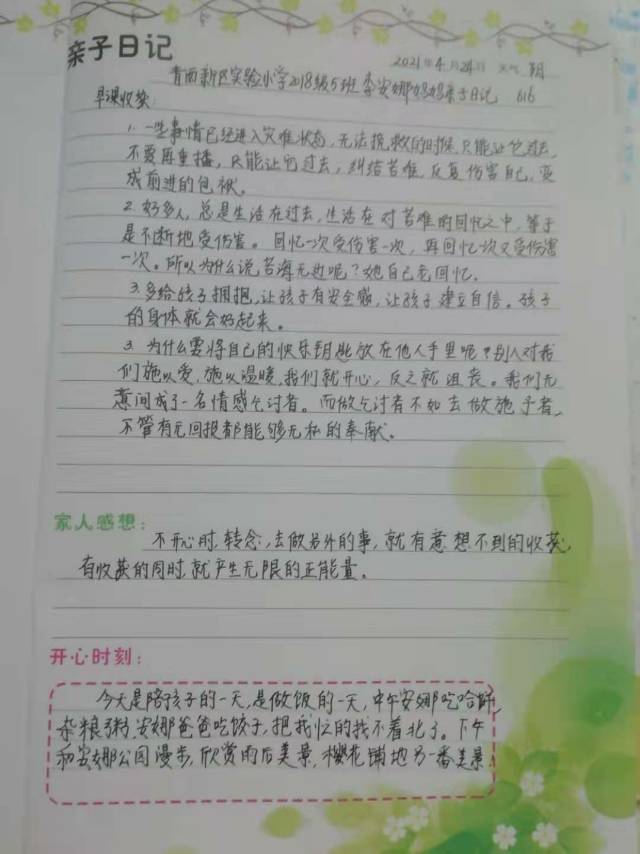 亲子日记
2021年4月24日 天气 阴
青西新区实验小学2018级5班 李安娜妈妈亲子日记 616
早课收获:
1. 一些事情已经进入灾难状态,无法挽救的时候,只能让它过去,
不要再重播,只能让它过去,纠结苦难,反复伤害自己,变
成前进的包袱。
2. 好多人,总是生活在过去,生活在对苦难的回忆之中,等于
是不断地受伤害。回忆一次受伤害一次,再回忆一次又受伤害
一次。所以为什么说苦海无边呢?她自己老回忆。
3. 多给孩子拥抱,让孩子有安全感,让孩子建立自信。孩子
的身体就会好起来。
3. 为什么要将自己的快乐钥匙放在他人手里呢?别人对我
们施以爱,施以温暖,我们就开心,反之就沮丧。我们无
意间成了一名情感乞讨者。而做乞讨者不如去做施予者,
不管有无回报都能够无私的奉献。
家人感想:
不开心时,转念,去做另外的事,就有意想不到的收获,
有收获的同时,就产生无限的正能量。
开心时刻:
今天是陪孩子的一天,是做饭的一天,中午安娜吃
杂粮粥,安娜爸爸吃饺子,把我忙的找不着北了。下午
和安娜公园漫步,欣赏雨后美景,樱花铺地另一番美景